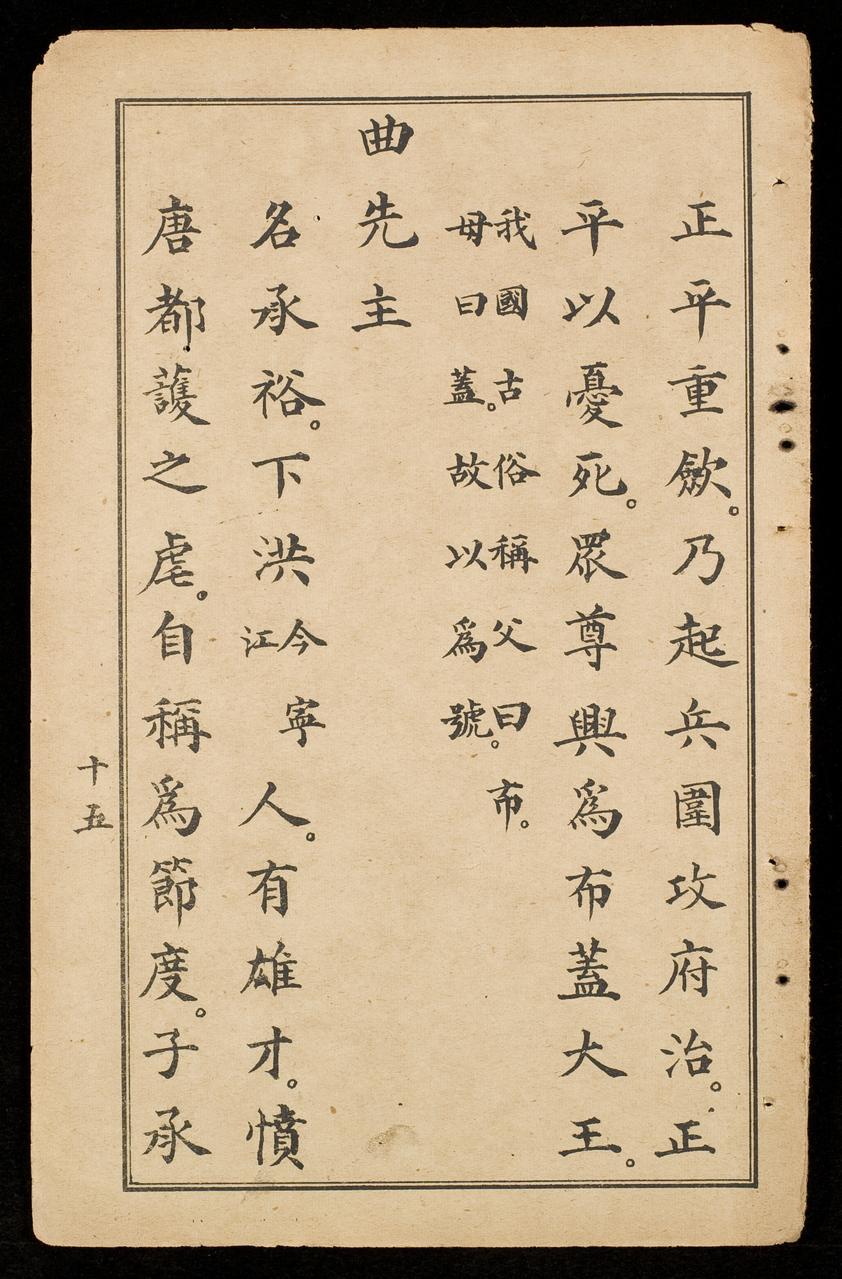 正平重斂。乃起兵圍攻府治。正
平以憂死。眾尊興爲布蓋大王。
我國古俗稱父曰布。
母曰蓋。故以爲號。
曲先主
名承裕。下洪今寧江人。有雄才。憤
唐都護之虐。自稱爲節度。子承
十五